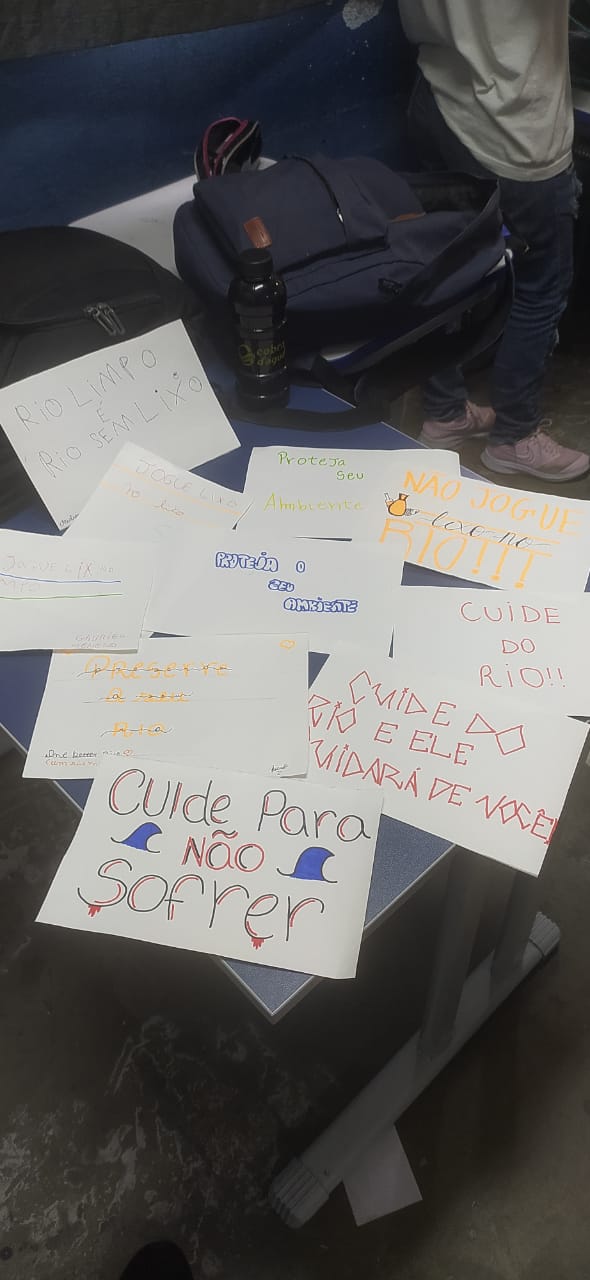 RIO LIMPO
É
RIO SEM LIXO
JOGUE LIXO
no lixo
Proteja
Seu
Ambiente
NÃO JOGUE
lixo no
RIO!!!
JOGUE LIXO NO
PROTEJA O
SEU
AMBIENTE
CUIDE
DO
RIO!!
Preserve
o seu
Rio
CUIDE DO
RIO E ELE
CUIDARÁ DE VOCÊ!
Cuide Para
Não
Sofrer
cobra
d'água